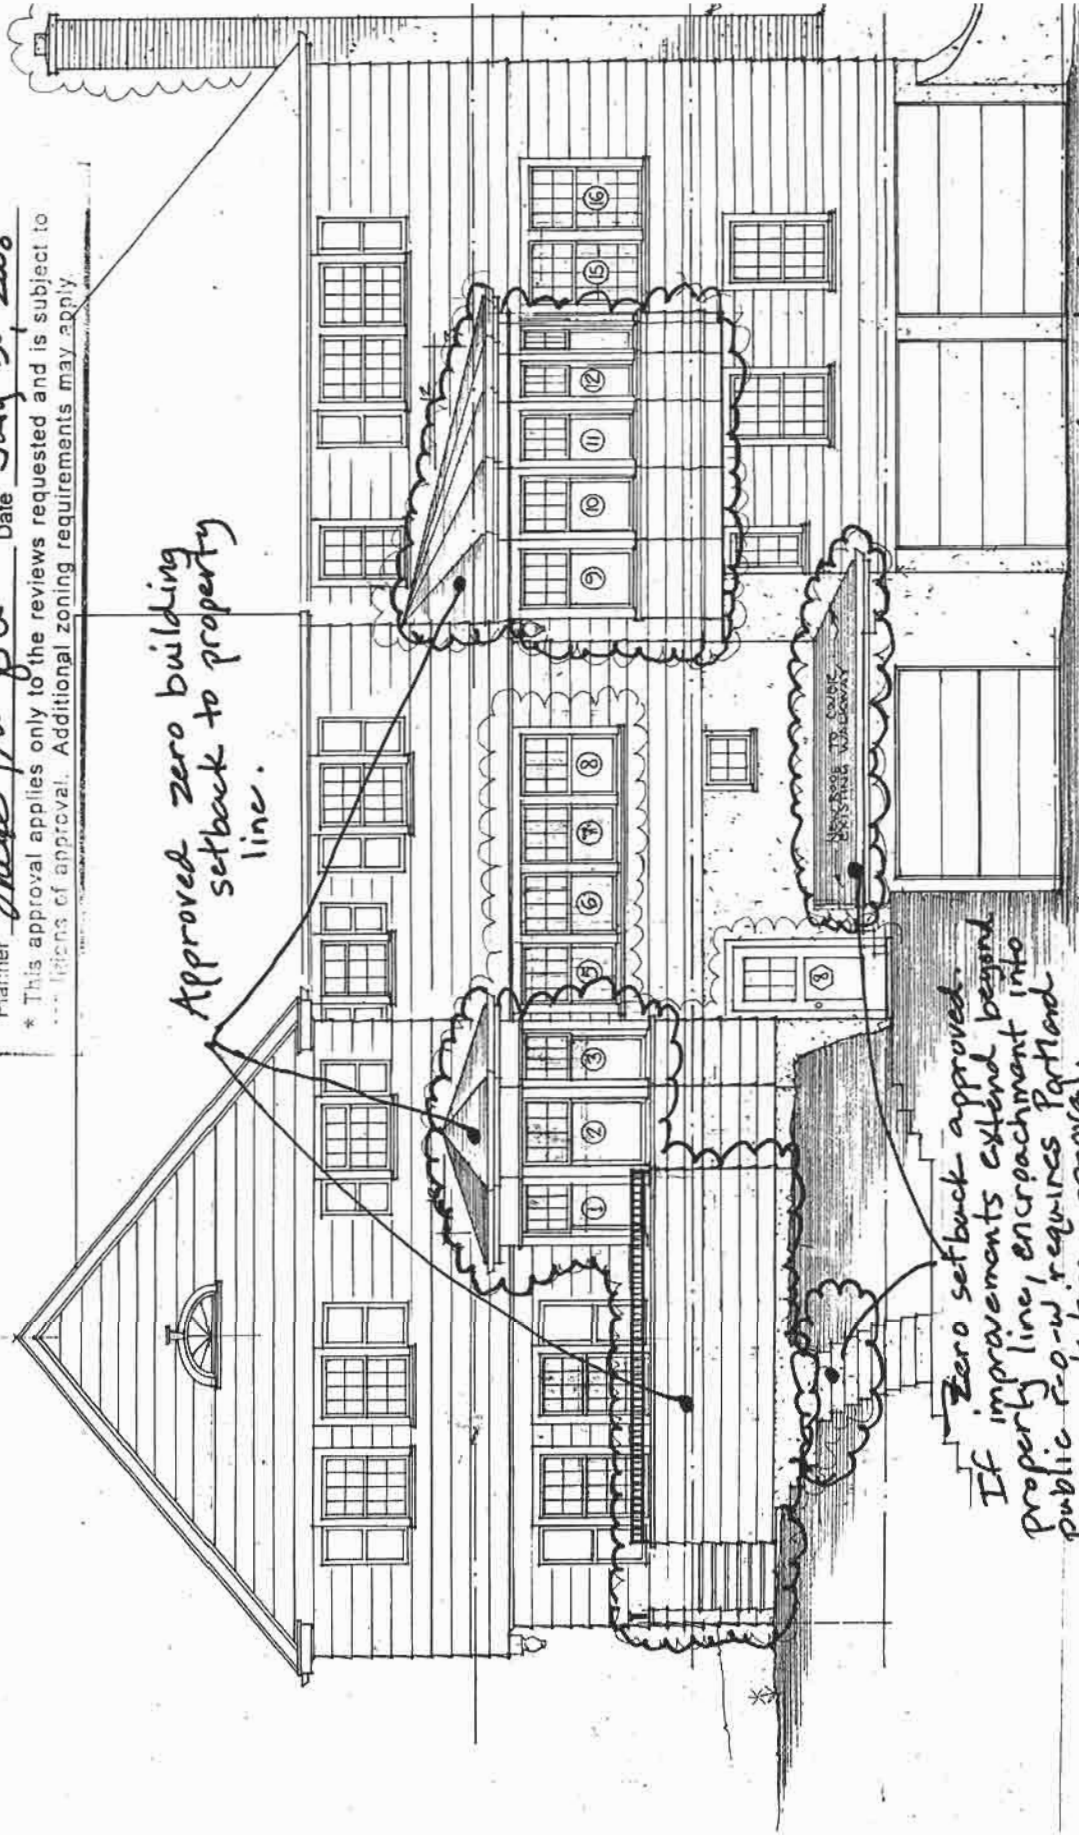 Planner
Date July 31, 2008
* This approval applies only to the reviews requested and is subject to
conditions of approval. Additional zoning requirements may apply.
Approved zero building
setback to property
line.
12
① ② ③ ⑤ ⑥ ⑦ ⑧ ⑨ ⑩ ⑪ ⑫ ⑮ ⑯
⑧
NEW ROOF TO COVER
EXISTING WALKWAY
Zero setback approved.
If improvements extend beyond
property line, encroachment into
public r-o-w requires Portland